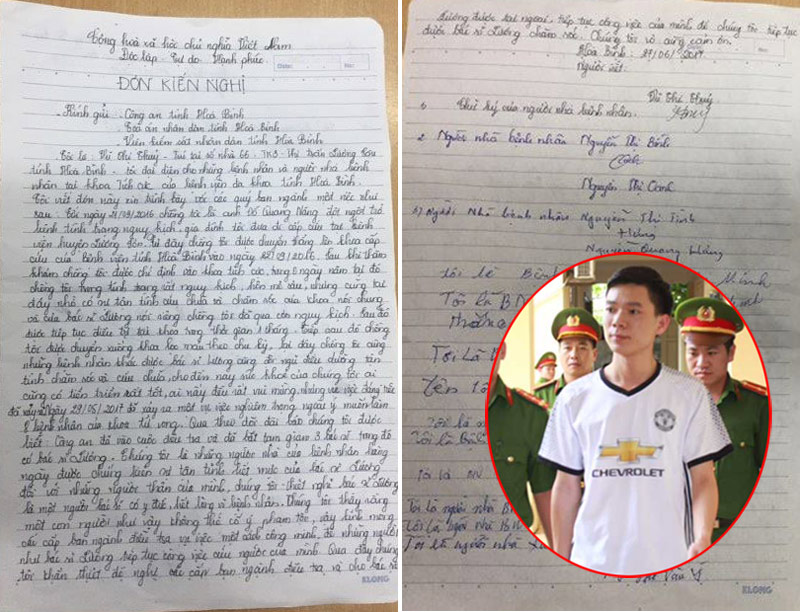 Cộng hoà xã hội chủ nghĩa Việt Nam
Độc lập - Tự do - Hạnh phúc.
ĐƠN KIẾN NGHỊ
Kính gửi : Công an tỉnh Hoà Bình
Toà án nhân dân tỉnh Hoà Bình
Viện kiểm sát nhân dân tỉnh Hoà Bình
Tôi là : Vũ Thị Thuý - Trú tại số nhà 66 - TK3 - Thị trấn Lương Sơn
tỉnh Hoà Bình - tôi đại diện cho những bệnh nhân và người nhà bệnh
nhân tại khoa Tích cực của bệnh viện đa khoa tỉnh Hoà Bình.
Tôi viết đơn này xin trình bày với các quý ban ngành một việc như
sau : Bởi ngày 21/09/2016 chồng tôi là anh Đỗ Quang Năng đột ngột trở
bệnh tình trạng nguy kịch, gia đình tôi đưa đi cấp cứu tại bệnh
viện huyện Lương Sơn, từ đây chồng tôi được chuyển thẳng lên khoa cấp
cứu của Bệnh viện tỉnh Hoà Bình vào ngày /09/2016. Sau khi thăm
khám chồng tôi được chỉ định vào khoa tích cực, trong ngày nằm tại đó
chồng tôi trong tình trạng rất nguy kịch, hôn mê sâu, nhưng cũng tại
đây nhờ có sự tận tình cứu chữa và chăm sóc của khoa nói chung
và của bác sĩ Lương nói riêng chồng tôi đã qua cơn nguy kịch. Sau đó
được tiếp tục điều trị tại khoa trong thời gian 1 tháng. Tiếp sau đó chồng
tôi được chuyển xuống khoa lọc máu theo chu kỳ, tại đây chồng tôi cùng
những bệnh nhân khác được bác sĩ Lương cùng đội ngũ điều dưỡng tận
tình chăm sóc và cứu chữa, cho đến nay sức khoẻ của chồng tôi ai
cũng có tiến triển rất tốt, ai nấy đều rất vui mừng, nhưng việc đáng tiếc
đã xảy ra ngày 29/05/2017 đã xảy ra một vụ việc nghiêm trọng ngoài ý muốn làm
8 bệnh nhân của khoa tử vong. Qua theo dõi đài báo chúng tôi được
biết: Công an đã vào cuộc điều tra và đã bắt tạm giam 3 bác sĩ trong đó
có bác sĩ Lương. Chúng tôi là những người nhà của bệnh nhân hằng
ngày được chứng kiến sự tận tình hết mức của bác sĩ Lương
đối với những người thân của mình, chúng tôi thiết nghĩ bác sĩ Lương
là một người bác sĩ có y đức, hết lòng vì bệnh nhân. Chúng tôi thấy rằng
một con người như vậy không thể cố ý phạm tội, vậy kính mong
các cấp ban ngành điều tra vụ việc một cách công minh, để những người
như bác sĩ Lương tiếp tục công việc cứu người của mình. Qua đây chúng
tôi khẩn thiết đề nghị các cấp ban ngành điều tra và cho bác sĩ
KLONG
Lương được tại ngoại, tiếp tục công việc của mình để chúng tôi tiếp tục
được bác sĩ Lương chăm sóc. Chúng tôi vô cùng cảm ơn.
Hoà Bình : 27/06/2017
Người viết.
Vũ Thị Thuý
Thuý
Chữ ký của người nhà bệnh nhân.
2. Người nhà bệnh nhân Nguyễn Thị Bình
Oanh
Nguyễn Thị Oanh
Người Nhà bệnh nhân Nguyễn Thị Tình
Hùng
Nguyễn Quang Hùng
Tôi là
Minh
Tôi là BN
Tôi là
Tên tôi
Tôi là
Tôi là
Tôi là người nhà
Tôi là người nhà
Tôi là người nhà
KLONG
CHEVROLET